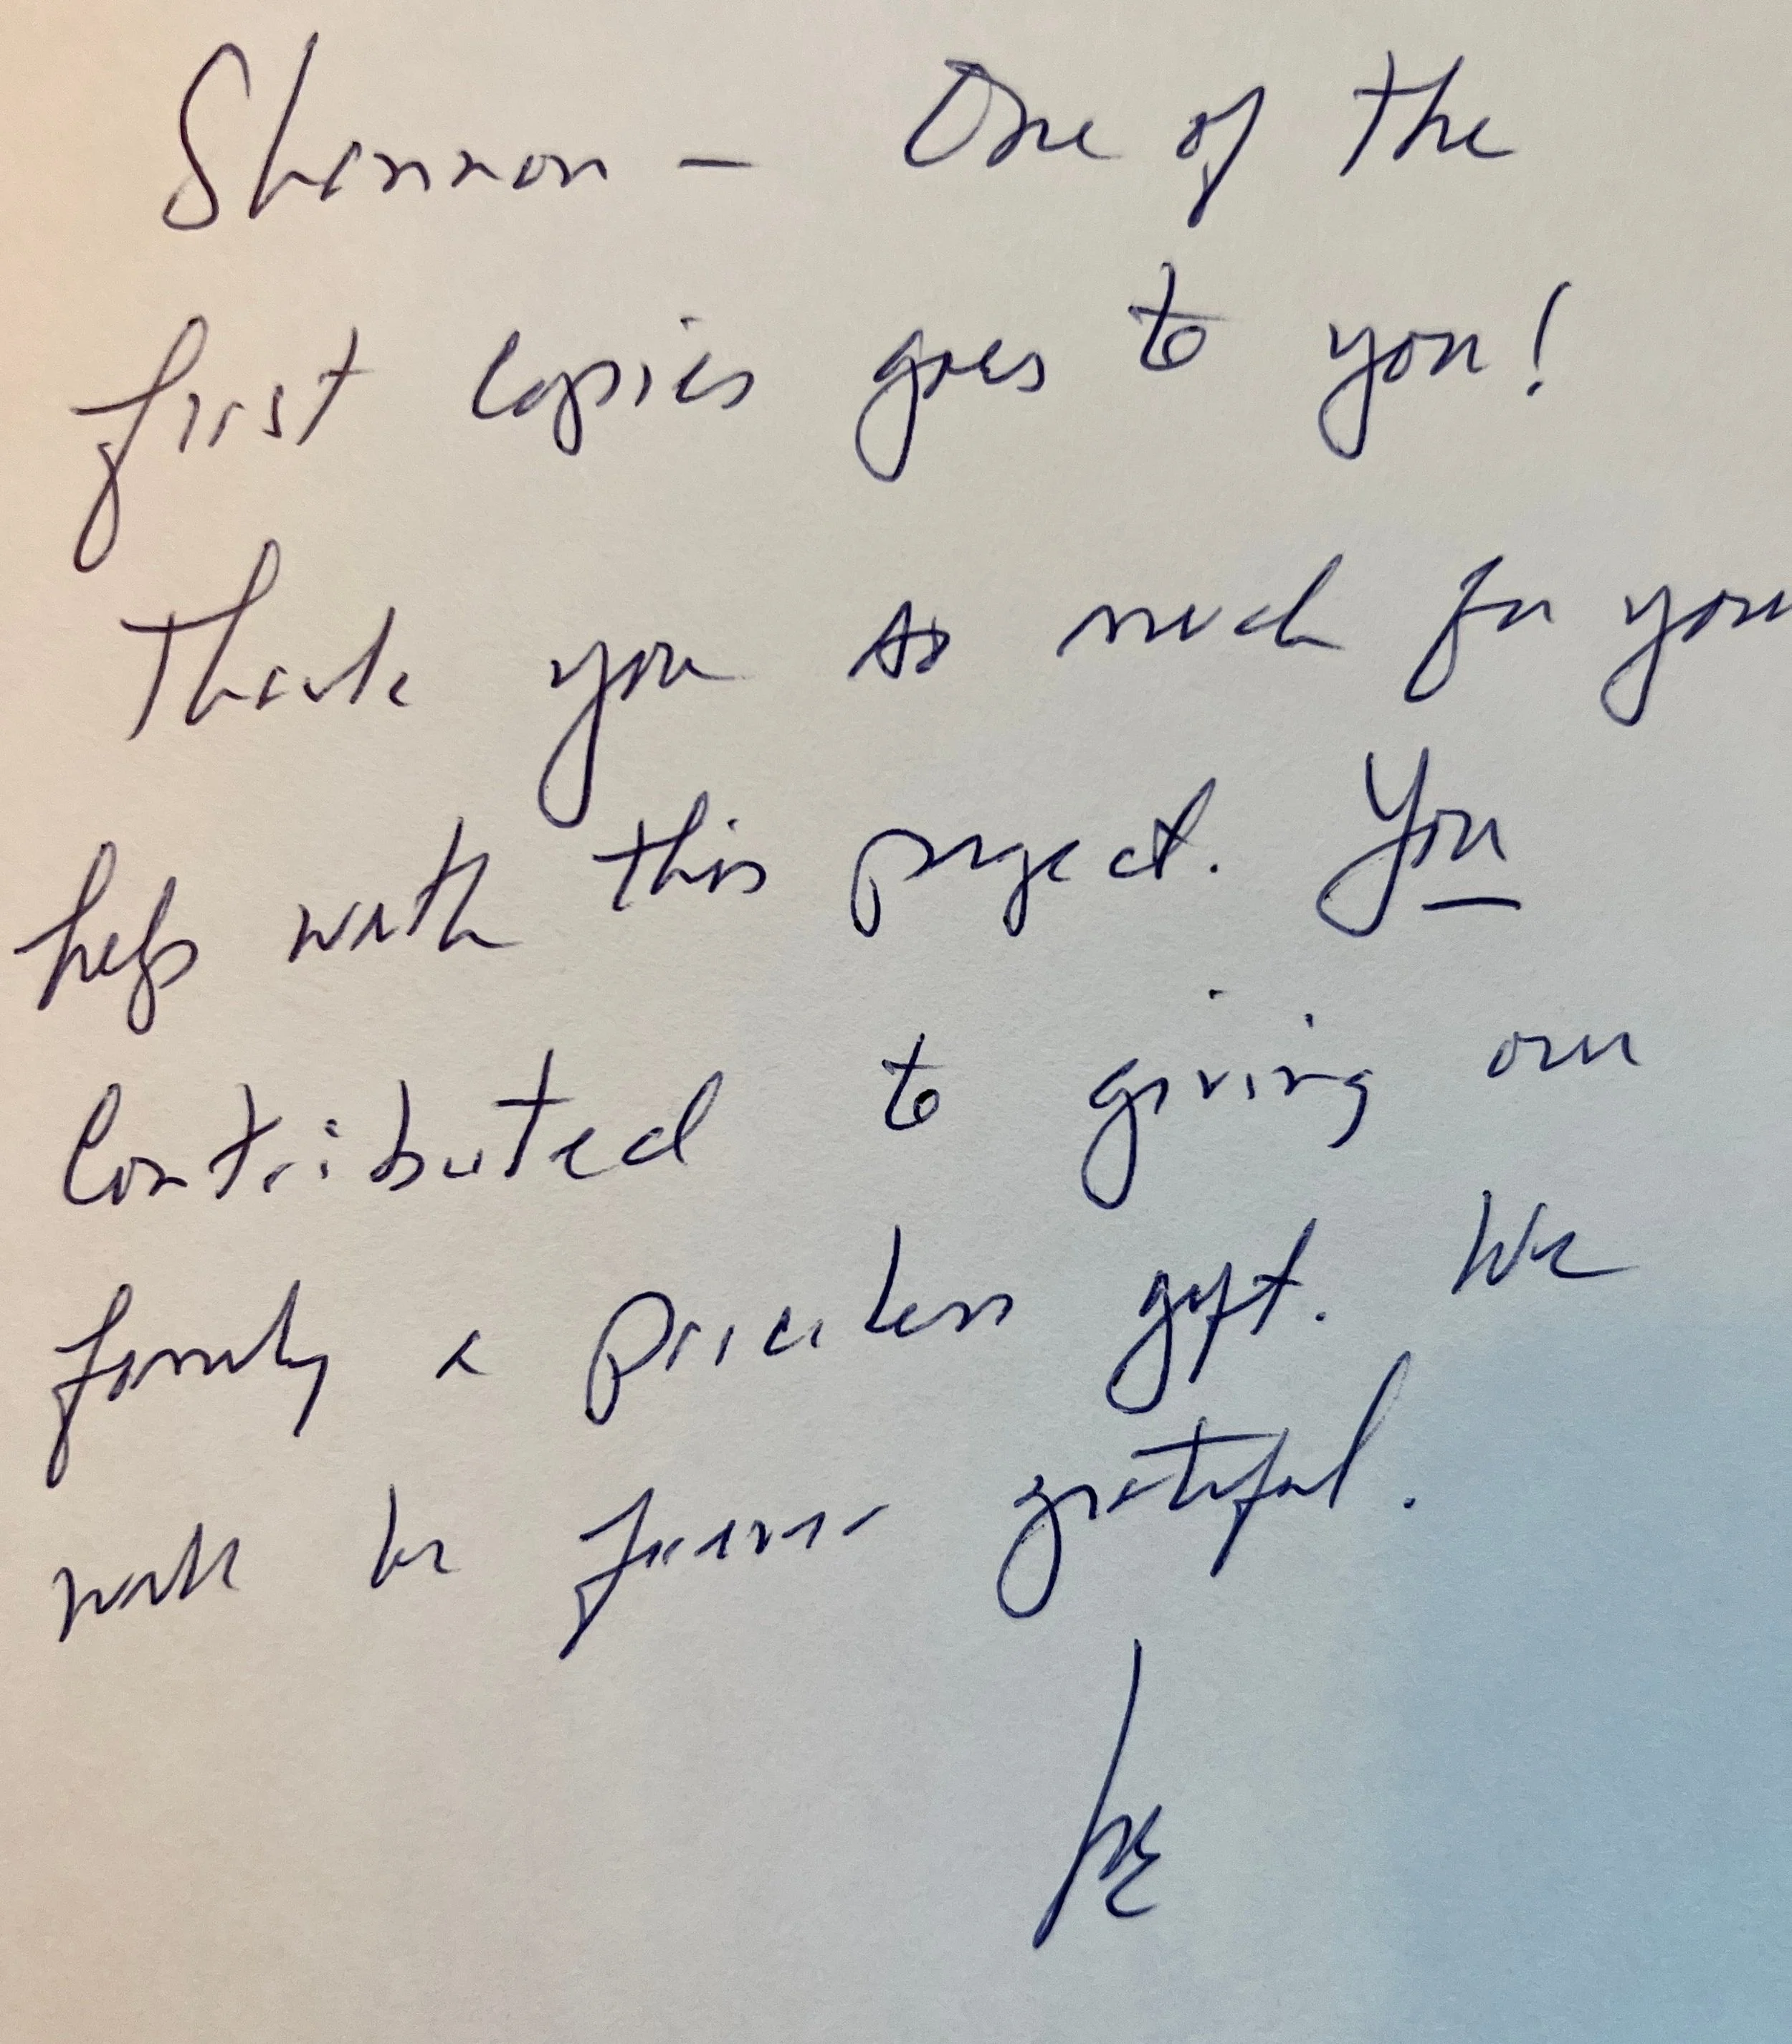 Shannon — One of the
first copies goes to you!
Thank you so much for your
help with this project. You
contributed to giving our
family a priceless gift. We
will be forever grateful.